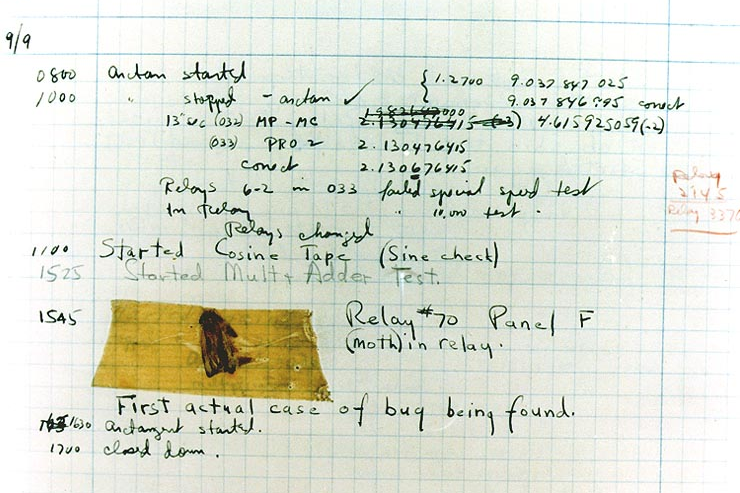 9/9
0800 arctan started { 1.2700 9.037 847 025
1000 " stopped - arctan ✓ 9.037 846 995 conect
13"uc (032) MP - MC 4.615925059(-2)
(033) PRO 2 2.130476415
conect 2.130676415
Relays 6-2 in 033 failed special speed test
In Relay " 10,000 test.
Relays changed
1100 Started Cosine Tape (Sine check)
1525 Started Mult+ Adder Test.
1545 Relay #70 Panel F
(moth) in relay.
First actual case of bug being found.
1630 arctangent started.
1700 closed down.
Relay
2145
Relay 3370